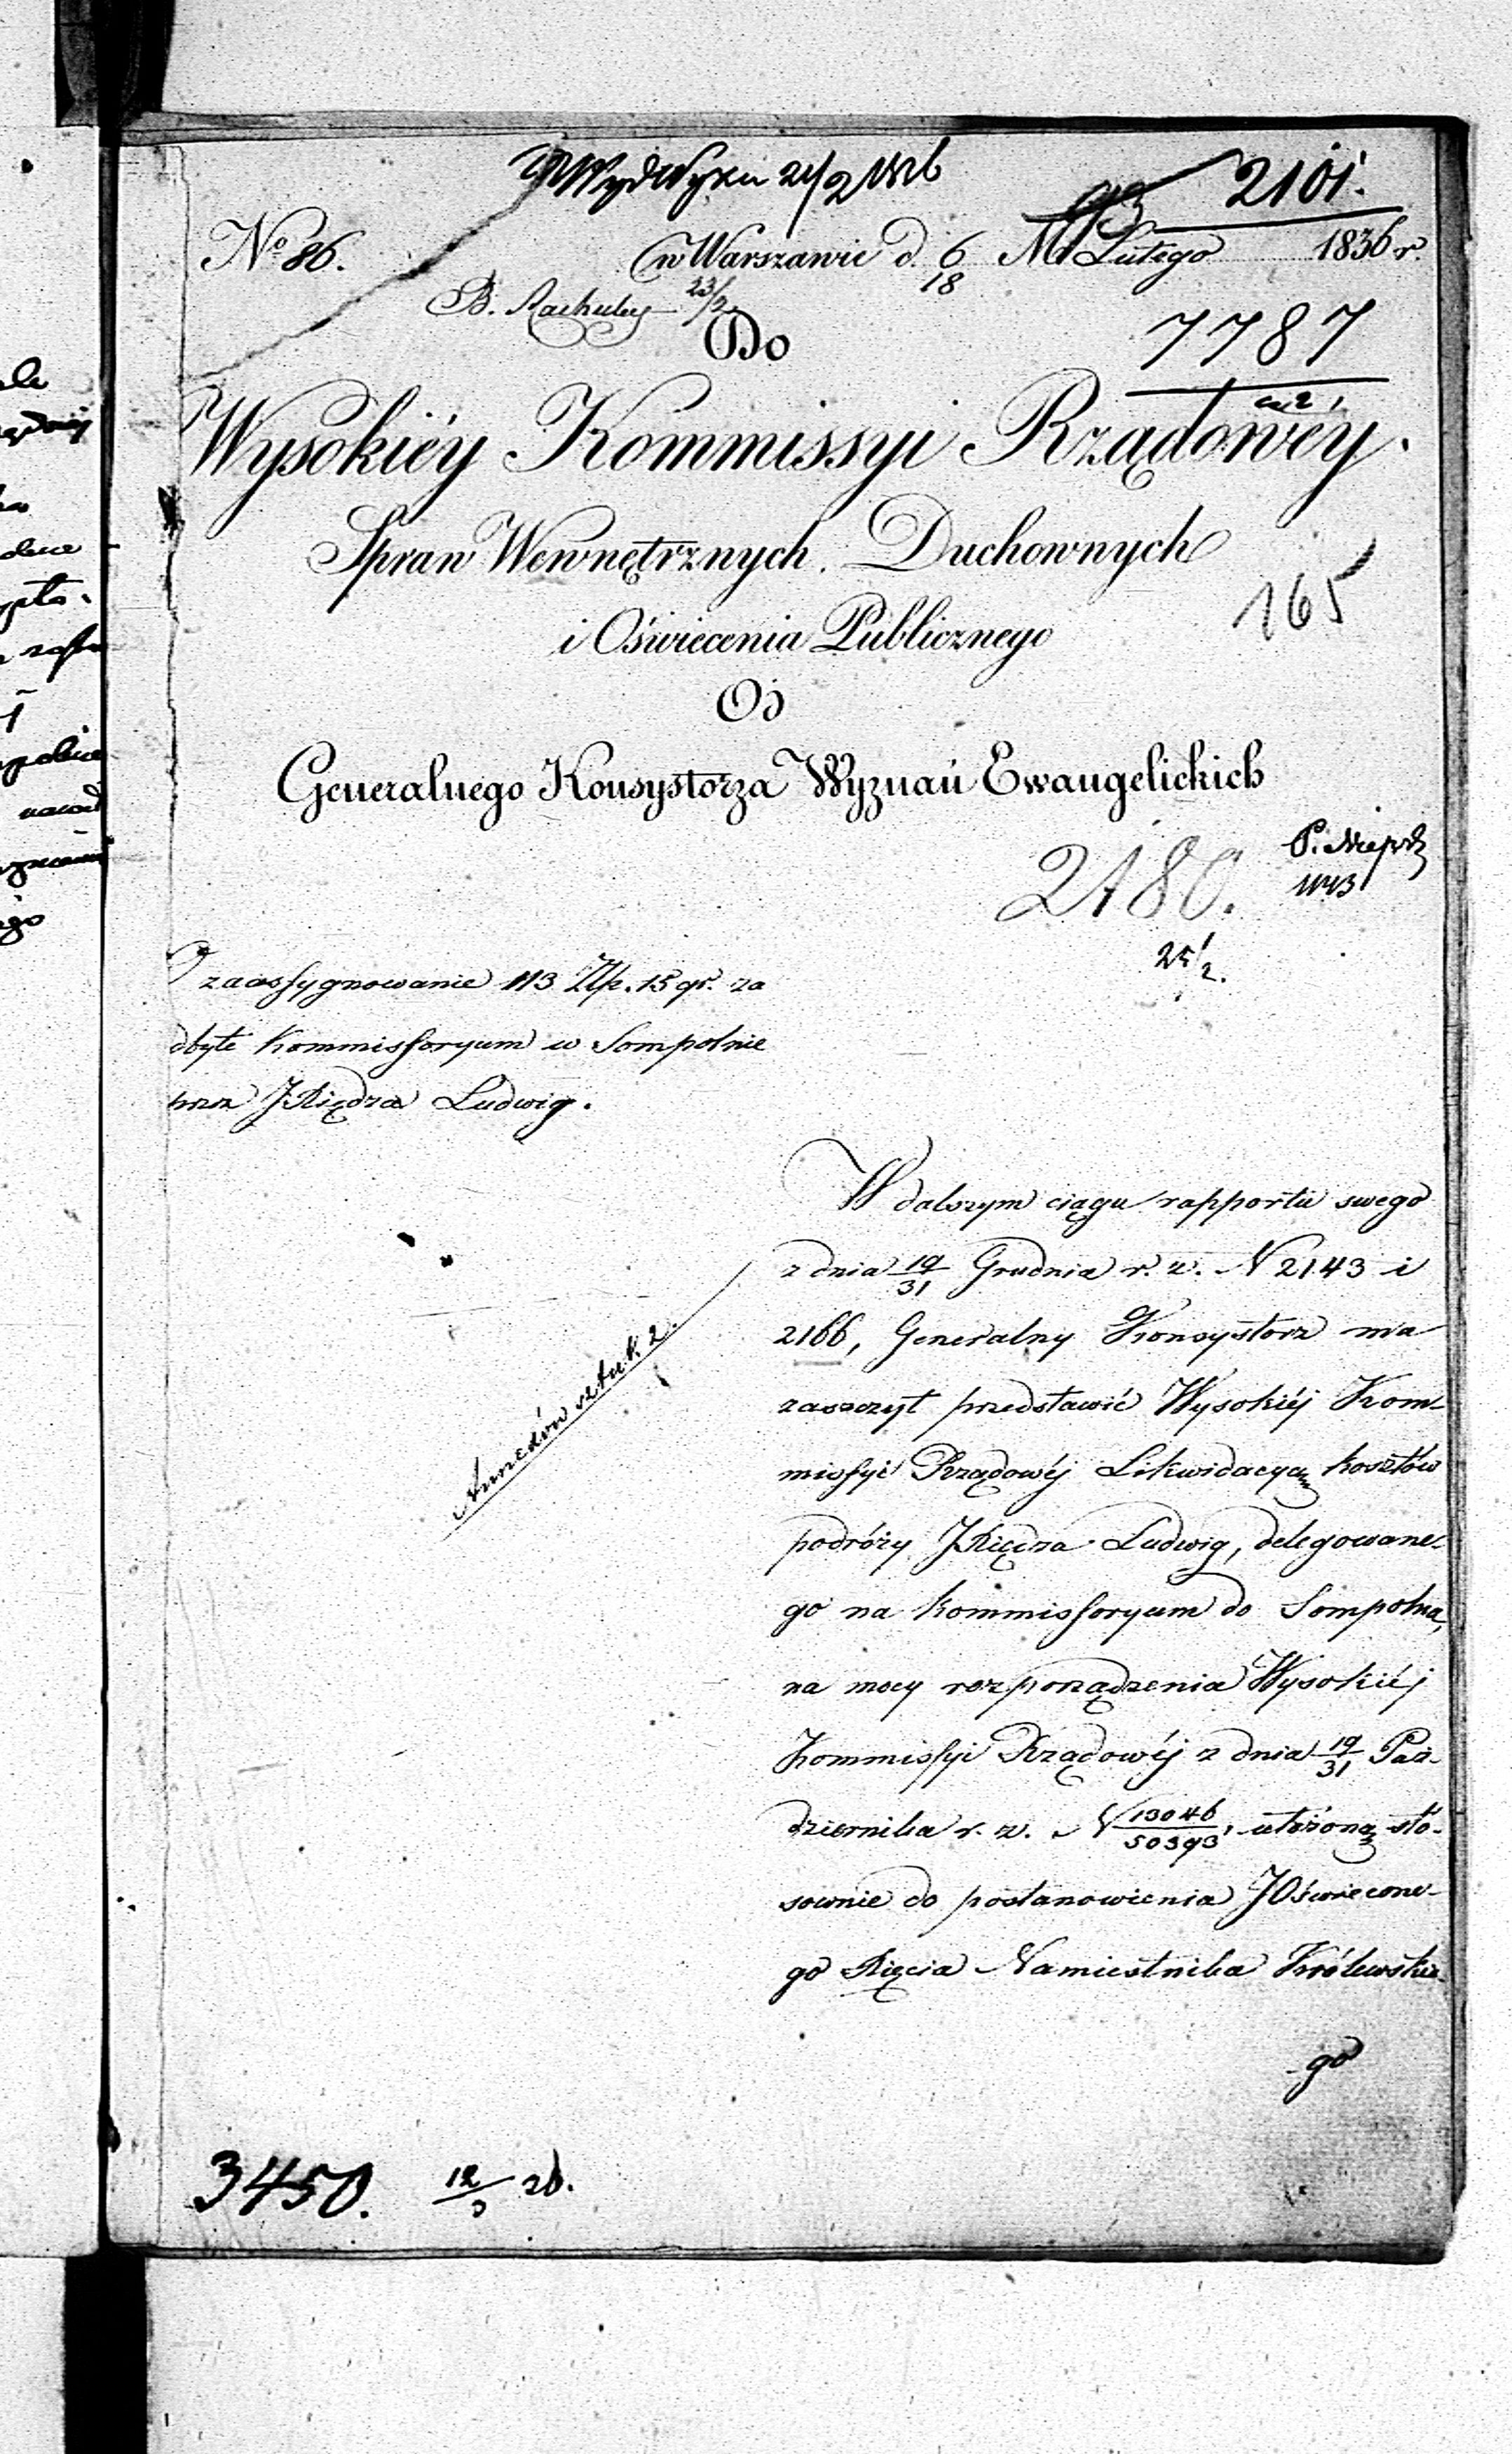 21/2
2101.
No 86.
w Warszawie d. 6/18 M Lutego 1836 r.
B. Rachuby 23/2
Do
7787
Wysokiéy Kommissyi Rządowéy.
Spraw Wewnętrznych, Duchownych
i Oświecenia Publicznego
165
Od
Generalnego Konsystorza Wyznań Ewangelickich
2180.
25/2.
O zaassygnowanie 113 Złp. 15 gr. za
dbyte Kommissoryum w Sompolnie
przez JXiędza Ludwig.
W dalszym ciągu rapportu swego
z dnia 19/31 Grudnia r. z. N 2143 i
2166, Generalny Konsystorz ma
zaszczyt przedstawić Wysokiéj Kom-
missyi Rządowéj Likwidacyą kosztów
podróży JXiędza Ludwig, delegowane-
go na Kommissoryum do Sompolna,
na mocy rozporządzenia Wysokiéj
Kommissyi Rządowéj z dnia 19/31 Paź-
dziernika r. z. N 13046/50393, ułożoną sto-
sownie do postanowienia JOświecone-
go Xięcia Namiestnika Królewskie-
go
Annexów sztuk 2.
3450. 12/3 26.